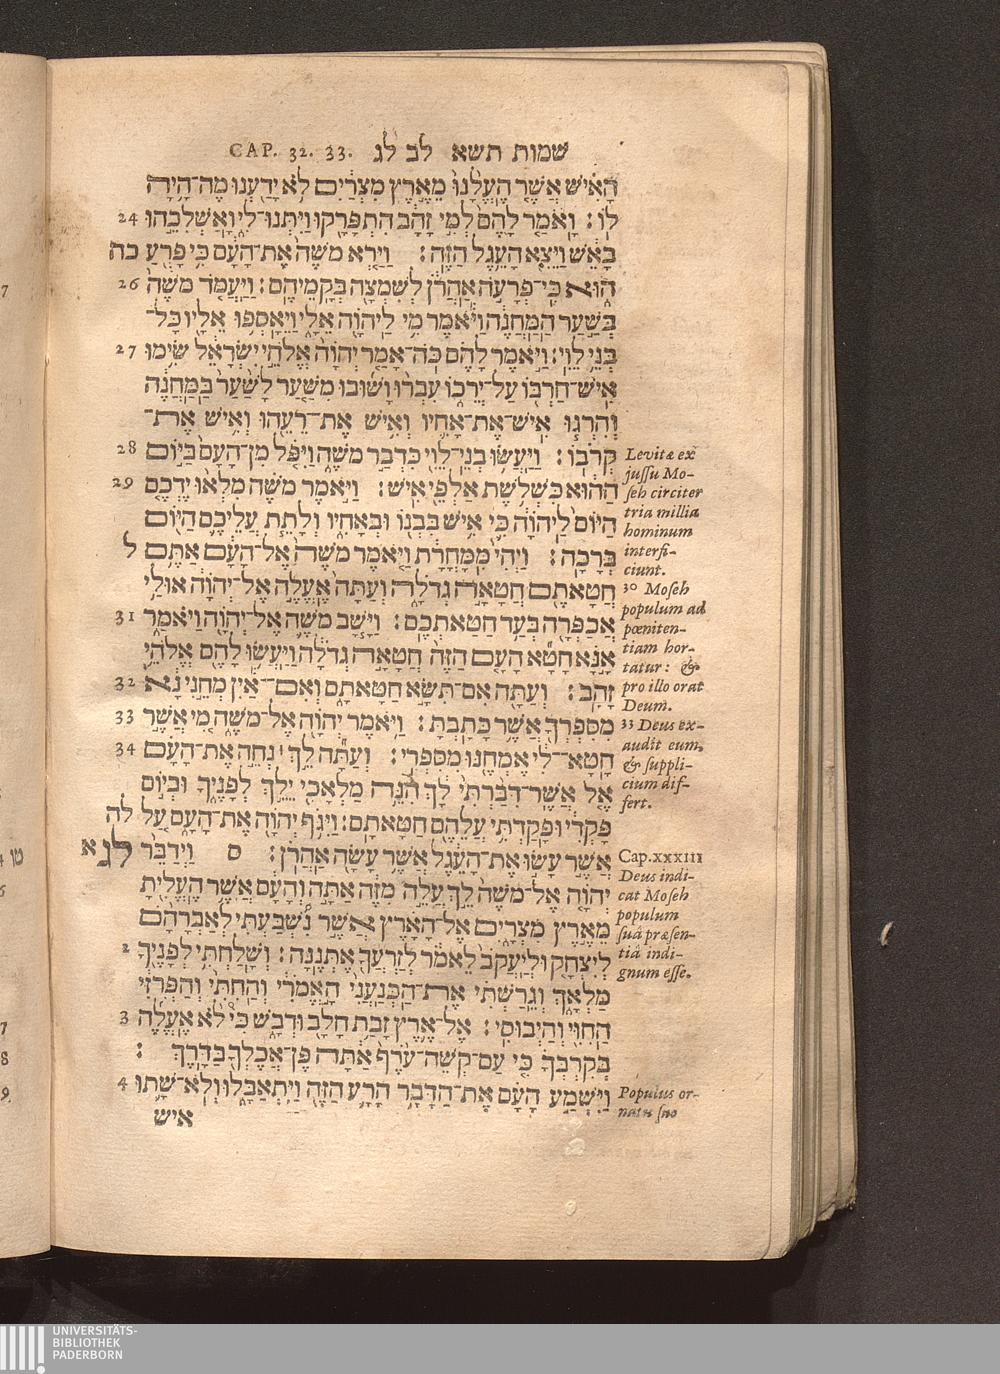 שמות תשא לב לג CAP. 32. 33.
הָאִישׁ אֲשֶׁר הֶעֱלָנוּ מֵאֶרֶץ מִצְרַיִם לֹא יָדַעְנוּ מֶה־הָיָה
לוֹ׃ וָאֹמַר לָהֶם לְמִי זָהָב הִתְפָּרָקוּ וַיִּתְּנוּ־לִי וָאַשְׁלִכֵהוּ 24
בָאֵשׁ וַיֵּצֵא הָעֵגֶל הַזֶּה׃ וַיַּרְא מֹשֶׁה אֶת־הָעָם כִּי פָרֻעַ כה
הוּא כִּי־פְרָעֹה אַהֲרֹן לְשִׁמְצָה בְּקָמֵיהֶם׃ וַיַּעֲמֹד מֹשֶׁה 26
בְּשַׁעַר הַמַּחֲנֶה וַיֹּאמֶר מִי לַיהוָֹה אֵלָי וַיֵּאָסְפוּ אֵלָיו כָּל־
בְּנֵי לֵוִי׃ וַיֹּאמֶר לָהֶם כֹּה־אָמַר יְהוָֹה אֱלֹהֵי יִשְׂרָאֵל שִׂימוּ 27
אִישׁ־חַרְבּוֹ עַל־יְרֵכוֹ עִבְרוּ וָשׁוּבוּ מִשַּׁעַר לָשַׁעַר בַּמַּחֲנֶה
וְהִרְגוּ אִישׁ־אֶת־אָחִיו וְאִישׁ אֶת־רֵעֵהוּ וְאִישׁ אֶת־
קְרֹבוֹ׃ וַיַּעֲשׂוּ בְנֵי־לֵוִי כִּדְבַר מֹשֶׁה וַיִּפֹּל מִן־הָעָם בַּיּוֹם 28
הַהוּא כִּשְׁלֹשֶׁת אַלְפֵי אִישׁ׃ וַיֹּאמֶר מֹשֶׁה מִלְאוּ יֶדְכֶם 29
הַיּוֹם לַיהוָֹה כִּי אִישׁ בִּבְנוֹ וּבְאָחִיו וְלָתֵת עֲלֵיכֶם הַיּוֹם
בְּרָכָה׃ וַיְהִי מִמָּחֳרָת וַיֹּאמֶר מֹשֶׁה אֶל־הָעָם אַתֶּם ל
חֲטָאתֶם חֲטָאָה גְדֹלָה וְעַתָּה אֶעֱלֶה אֶל־יְהוָֹה אוּלַי
אֲכַפְּרָה בְּעַד חַטַּאתְכֶם׃ וַיָּשָׁב מֹשֶׁה אֶל־יְהוָֹה וַיֹּאמַר 31
אָנָּא חָטָא הָעָם הַזֶּה חֲטָאָה גְדֹלָה וַיַּעֲשׂוּ לָהֶם אֱלֹהֵי
זָהָב׃ וְעַתָּה אִם־תִּשָּׂא חַטָּאתָם וְאִם־אַיִן מְחֵנִי נָא 32
מִסִּפְרְךָ אֲשֶׁר כָּתָבְתָּ׃ וַיֹּאמֶר יְהוָֹה אֶל־מֹשֶׁה מִי אֲשֶׁר 33
חָטָא־לִי אֶמְחֶנּוּ מִסִּפְרִי׃ וְעַתָּה לֵךְ ׀ נְחֵה אֶת־הָעָם 34
אֶל אֲשֶׁר־דִּבַּרְתִּי לָךְ הִנֵּה מַלְאָכִי יֵלֵךְ לְפָנֶיךָ וּבְיוֹם
פָּקְדִי וּפָקַדְתִּי עֲלֵהֶם חַטָּאתָם׃ וַיִּגֹּף יְהוָֹה אֶת־הָעָם עַל לה
אֲשֶׁר עָשׂוּ אֶת־הָעֵגֶל אֲשֶׁר עָשָׂה אַהֲרֹן׃ ס וַיְדַבֵּר לג א
יְהוָֹה אֶל־מֹשֶׁה לֵךְ עֲלֵה מִזֶּה אַתָּה וְהָעָם אֲשֶׁר הֶעֱלִיתָ
מֵאֶרֶץ מִצְרָיִם אֶל־הָאָרֶץ אֲשֶׁר נִשְׁבַּעְתִּי לְאַבְרָהָם
לְיִצְחָק וּלְיַעֲקֹב לֵאמֹר לְזַרְעֲךָ אֶתְּנֶנָּה׃ וְשָׁלַחְתִּי לְפָנֶיךָ 2
מַלְאָךְ וְגֵרַשְׁתִּי אֶת־הַכְּנַעֲנִי הָאֱמֹרִי וְהַחִתִּי וְהַפְּרִזִּי
הַחִוִּי וְהַיְבוּסִי׃ אֶל־אֶרֶץ זָבַת חָלָב וּדְבָשׁ כִּי לֹא אֶעֱלֶה 3
בְּקִרְבְּךָ כִּי עַם־קְשֵׁה־עֹרֶף אַתָּה פֶּן־אֲכֶלְךָ בַּדָּרֶךְ׃
וַיִּשְׁמַע הָעָם אֶת־הַדָּבָר הָרָע הַזֶּה וַיִּתְאַבָּלוּ וְלֹא־שָׁתוּ 4
איש
Levitæ ex
jussu Mo-
seh circiter
tria millia
hominum
interfi-
ciunt.
30 Moseh
populum ad
pœniten-
tiam hor-
tatur: &
pro illo orat
Deum.
33 Deus ex-
audit eum,
& suppli-
cium dif-
fert.
Cap.XXXIII
Deus indi-
cat Moseh
populum
suâ præsen-
tiâ indi-
gnum esse.
Populus or-
natu suo
UNIVERSITÄTS-
BIBLIOTHEK
PADERBORN